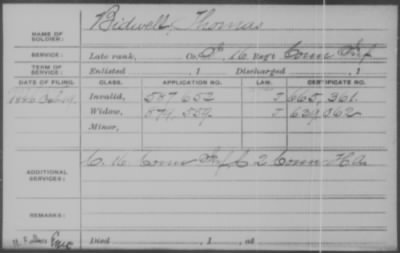 NAME OF SOLDIER: Bidwell, Thomas
SERVICE: Late rank, Co. D, 16 Reg't Conn Inf
TERM OF SERVICE: Enlisted , 1 Discharged , 1
DATE OF FILING. CLASS. APPLICATION NO. LAW. CERTIFICATE NO.
1886 Invalid, 587.652 665,361
Widow, 574,559 639,362
Minor,
ADDITIONAL SERVICES: C. 16 Conn Inf & C 2 Conn H A
REMARKS:
Died , 1 , at